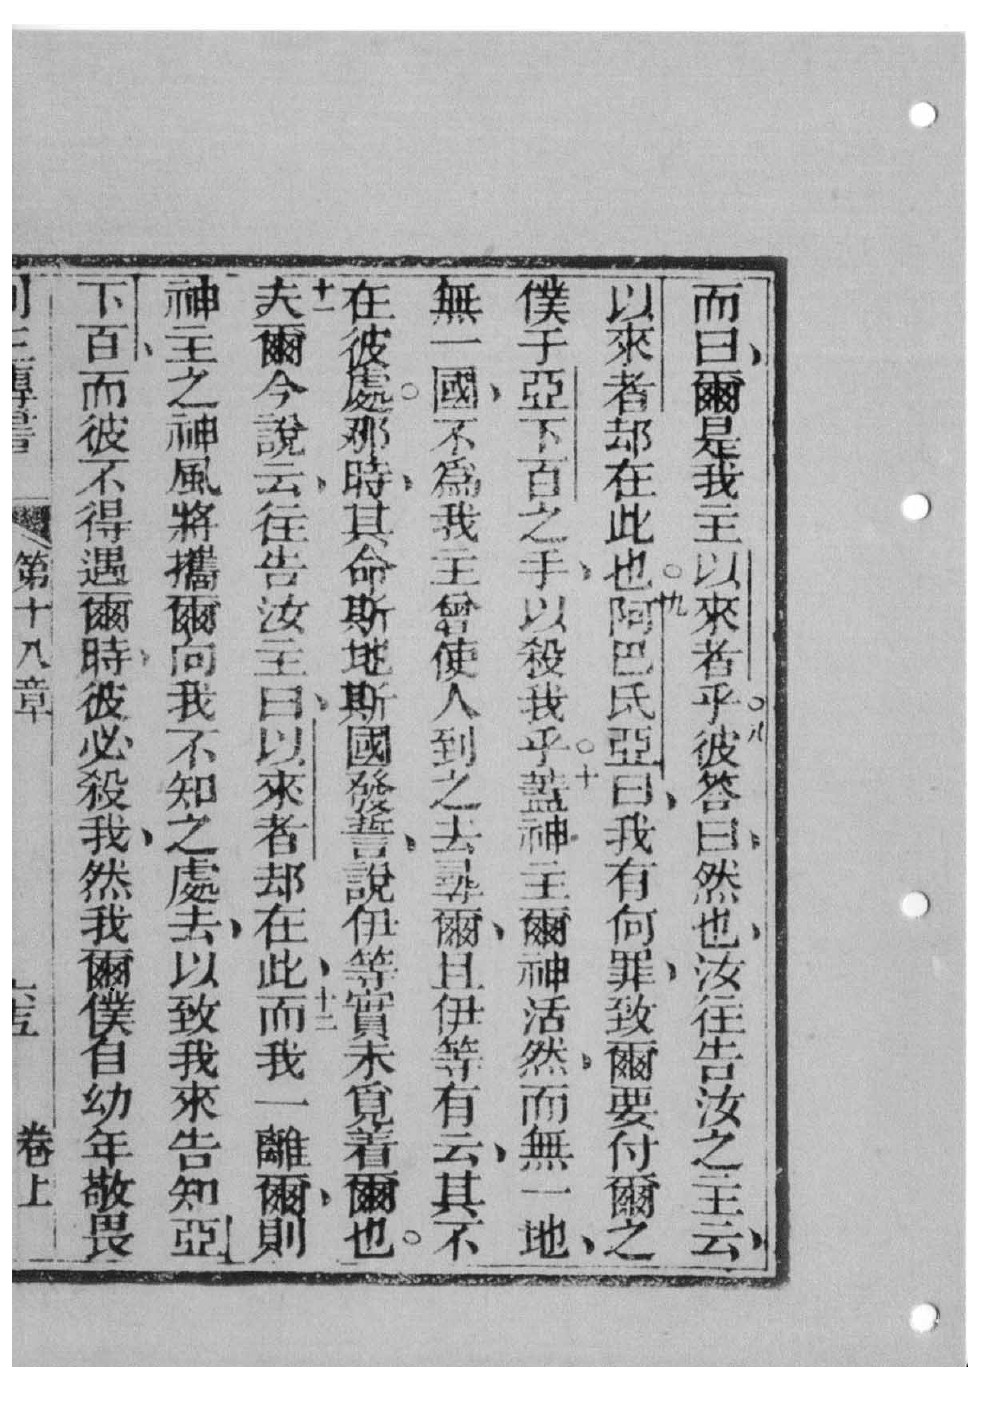 而曰、爾是我主以來者乎。八彼答曰、然也、汝往告汝之主云、
以來者却在此也。九阿巴氐亞曰、我有何罪、致爾要付爾之
僕于亞下百之手、以殺我乎。十蓋神主爾神活然、而無一地、
無一國、不爲我主曾使人到之去尋爾、且伊等有云、其不
在彼處。那時、其命斯地斯國發誓、說伊等實未覓着爾也。
十一夫爾今說云、往告汝主曰、以來者却在此、十二而我一離爾、則
神主之神風將攜爾向我不知之處去、以致我來告知亞
下百、而彼不得遇爾時、彼必殺我、然我爾僕自幼年敬畏
列王傳書 第十八章 卷上